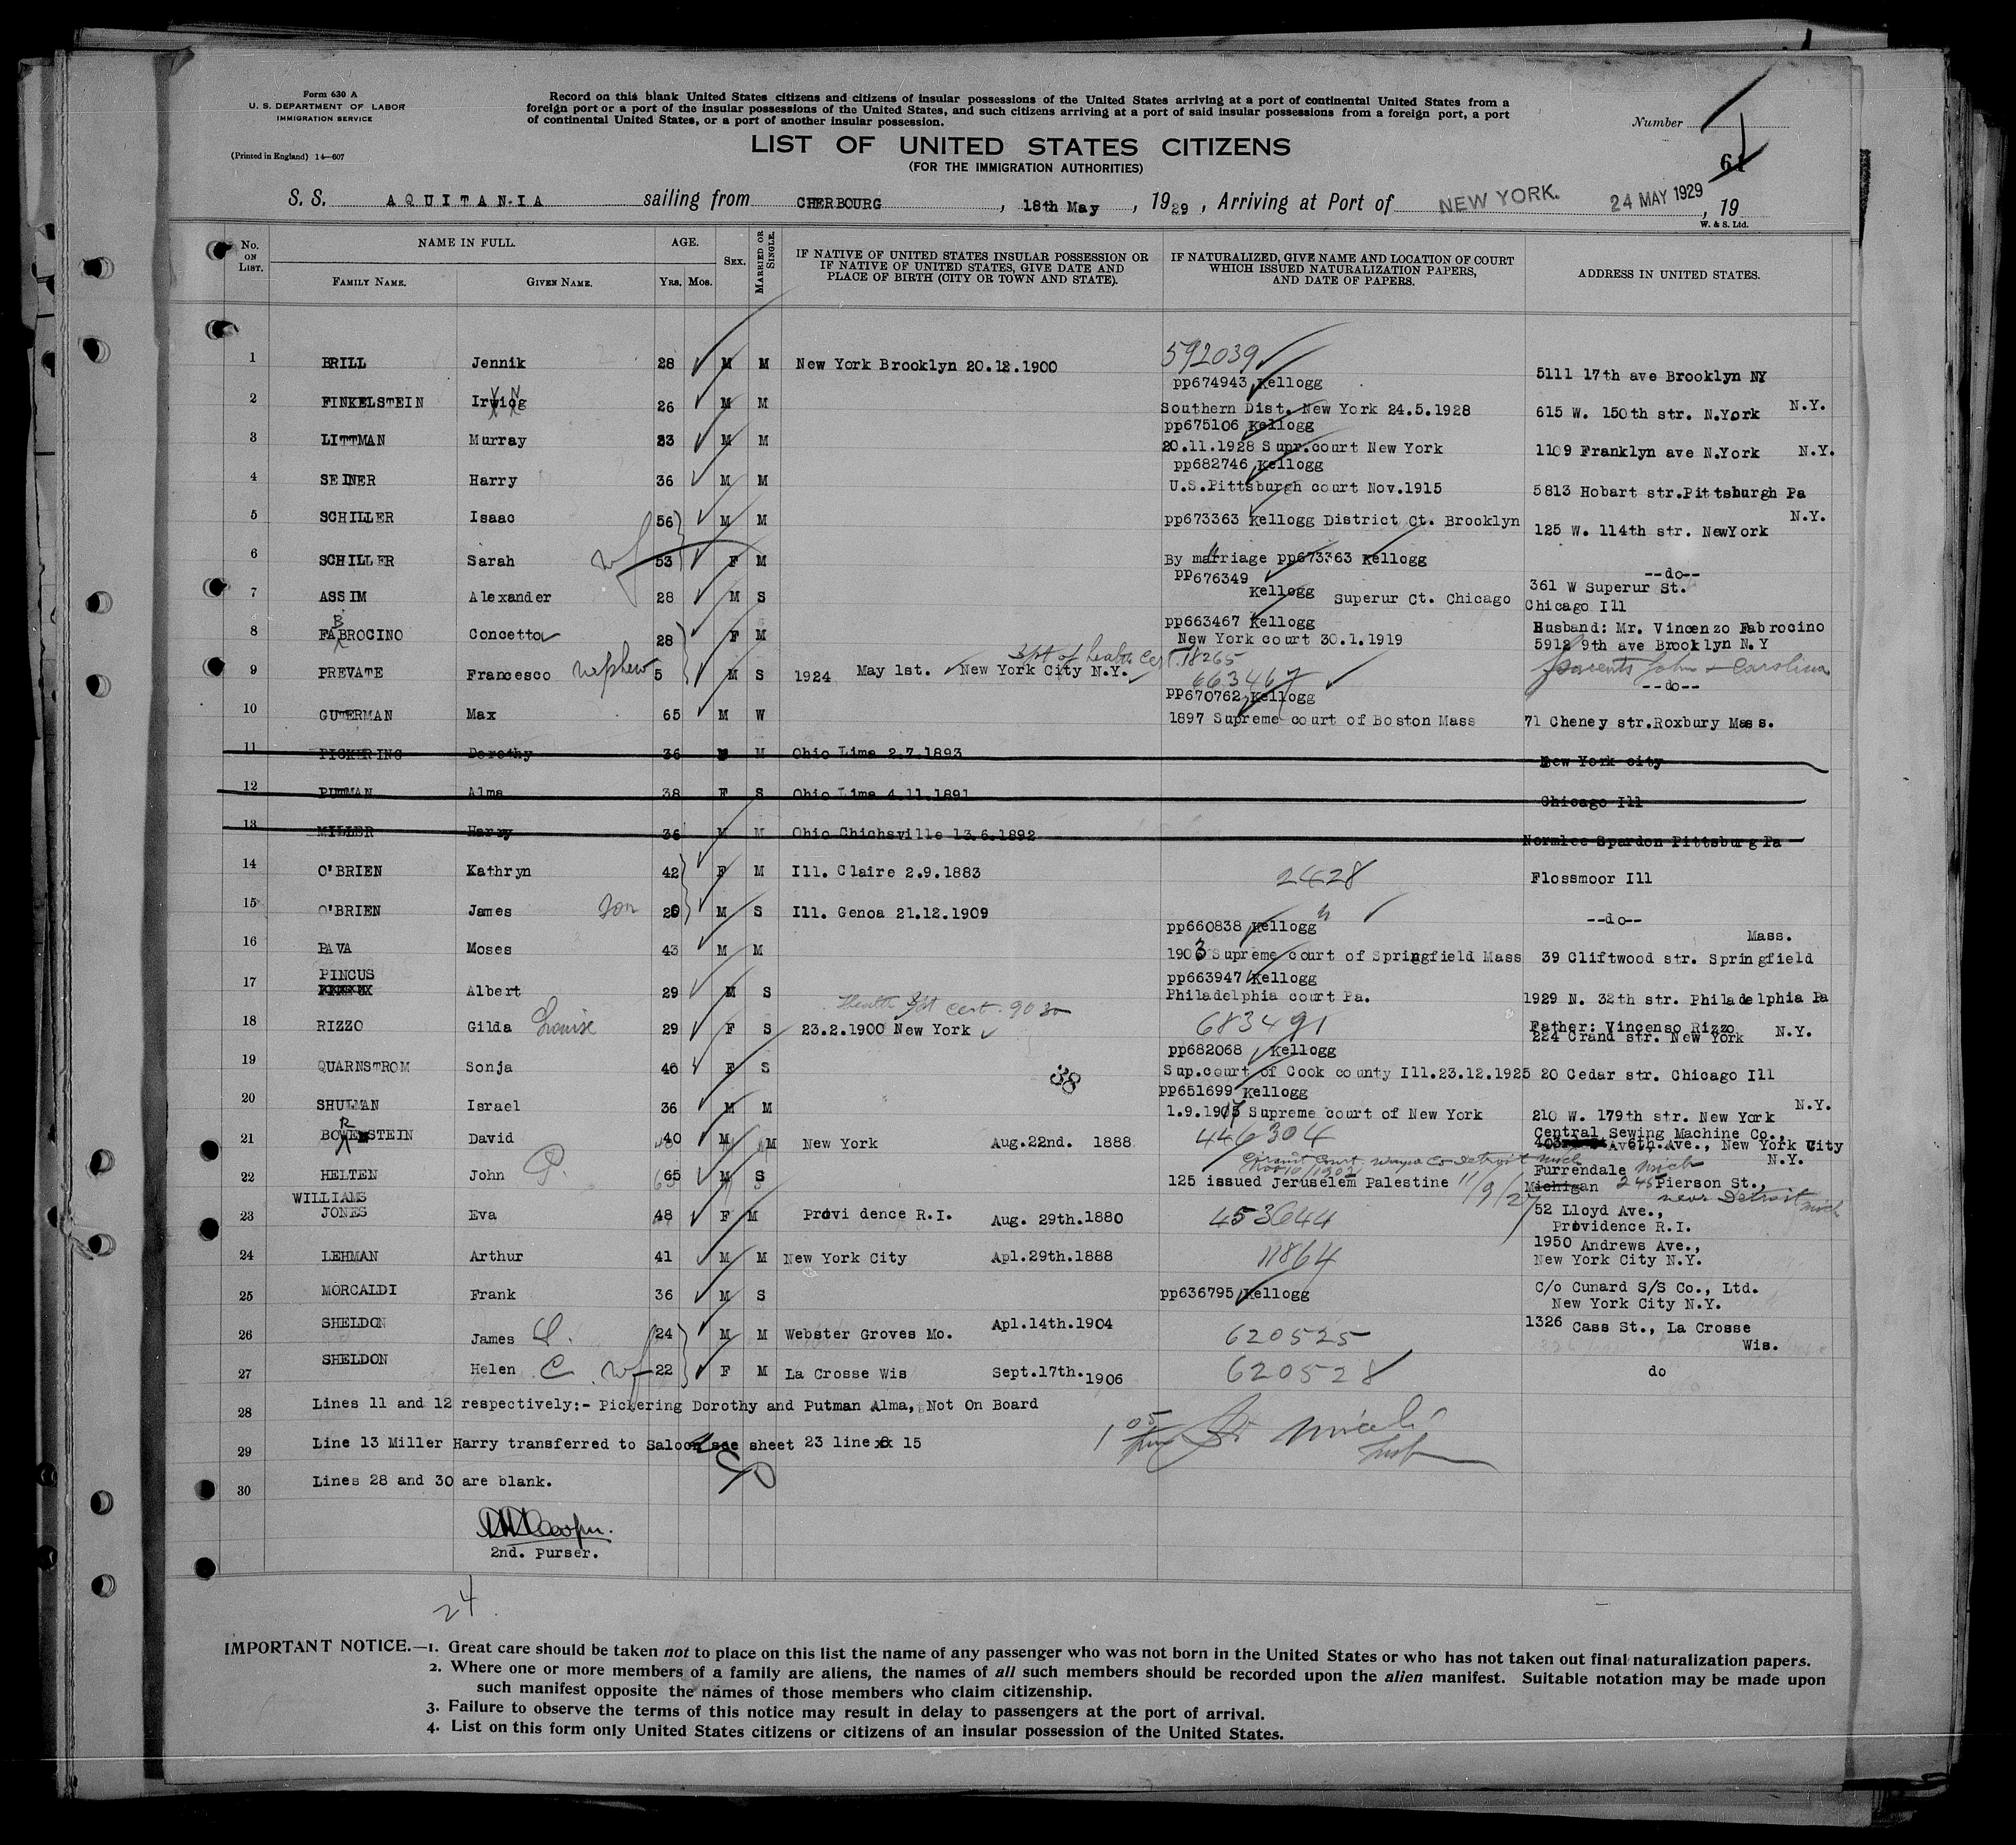 Form 630 A
U. S. DEPARTMENT OF LABOR
IMMIGRATION SERVICE
(Printed in England) 14—607
Record on this blank United States citizens and citizens of insular possessions of the United States arriving at a port of continental United States from a
foreign port or a port of the insular possessions of the United States, and such citizens arriving at a port of said insular possessions from a foreign port, a port
of continental United States, or a port of another insular possession.
Number
LIST OF UNITED STATES CITIZENS
(FOR THE IMMIGRATION AUTHORITIES)
61
S. S. AQUITANIA sailing from CHERBOURG, 18th May, 1929, Arriving at Port of NEW YORK. 24 MAY 1929, 19
W. & S. Ltd.
No. ON LIST. NAME IN FULL. AGE. SEX. MARRIED OR SINGLE. IF NATIVE OF UNITED STATES INSULAR POSSESSION OR IF NATIVE OF UNITED STATES, GIVE DATE AND PLACE OF BIRTH (CITY OR TOWN AND STATE). IF NATURALIZED, GIVE NAME AND LOCATION OF COURT WHICH ISSUED NATURALIZATION PAPERS, AND DATE OF PAPERS. ADDRESS IN UNITED STATES.
FAMILY NAME. GIVEN NAME. Yrs. Mos.
1 BRILL Jennik 28 M M New York Brooklyn 20.12.1900 592039 5111 17th ave Brooklyn NY
pp674943 Kellogg
2 FINKELSTEIN Irwiog 26 M M Southern Dist. New York 24.5.1928 615 W. 150th str. N.York N.Y.
pp675106 Kellogg
3 LITTMAN Murray 33 M M 20.11.1928 Supr.court New York 1109 Franklyn ave N.York N.Y.
pp682746 Kellogg
4 SEINER Harry 36 M M U.S.Pittsburgh court Nov.1915 5813 Hobart str.Pittsburgh Pa
5 SCHILLER Isaac 56 M M pp673363 Kellogg District Ct. Brooklyn 125 W. 114th str. NewYork N.Y.
6 SCHILLER Sarah wf 53 F M By marriage pp673363 Kellogg --do--
pp676349
7 ASSIM Alexander 28 M S Kellogg Superur Ct. Chicago 361 W Superur St. Chicago Ill
pp663467 Kellogg
8 FABROCINO Concetto 28 F M New York court 30.1.1919 Husband: Mr. Vincenzo Fabrocino 5912 9th ave Brooklyn N.Y
Cert. 18265
9 PREVATE Francesco nephew 5 M S 1924 May 1st. New York City N.Y. 663467 parents John & Carolina --do--
pp670762 Kellogg
10 GUTERMAN Max 65 M W 1897 Supreme court of Boston Mass 71 Cheney str.Roxbury Mass.
11 PICKERING Dorothy 36 M Ohio Lima 2.7.1893 New York city
12 PUTMAN Alma 38 F S Ohio Lima 4.11.1891 Chicago Ill
13 MILLER Harry 36 M M Ohio Chichsville 13.6.1892 Normlee Spardon Pittsburg Pa
14 O'BRIEN Kathryn 42 F M Ill. Claire 2.9.1883 2428 Flossmoor Ill
15 O'BRIEN James son 20 M S Ill. Genoa 21.12.1909 --do--
pp660838 Kellogg
16 PAVA Moses 43 M M 1903 Supreme court of Springfield Mass 39 Cliftwood str. Springfield Mass.
pp663947 Kellogg
17 PINCUS Albert 29 M S Philadelphia court Pa. 1929 N. 32th str. Philadelphia Pa
Health cert. 9030
18 RIZZO Gilda Louise 29 F S 23.2.1900 New York 683491 Father: Vincenso Rizzo 224 Grand str. New York N.Y.
pp682068 Kellogg
19 QUARNSTROM Sonja 40 F S 38 Sup.court of Cook county Ill.23.12.1925 20 Cedar str. Chicago Ill
pp651699 Kellogg
20 SHULMAN Israel 36 M M 1.9.1913 Supreme court of New York 210 W. 179th str. New York N.Y.
21 BORENSTEIN David 40 M M New York Aug.22nd. 1888 446304 Central Sewing Machine Co., 403 6th.Ave., New York City N.Y.
Circuit Court Wayne Co Detroit Mich
Nov 10/1902
22 HELTEN John P. 65 M S 125 issued Jeruselem Palestine 11/9/27 Furrendale Mich Michigan 245 Pierson St., near Detroit Mich
WILLIAMS
23 JONES Eva 48 F M Providence R.I. Aug. 29th.1880 453644 52 Lloyd Ave., Providence R.I.
24 LEHMAN Arthur 41 M M New York City Apl.29th.1888 11864 1950 Andrews Ave., New York City N.Y.
25 MORCALDI Frank 36 M S pp636795 Kellogg C/o Cunard S/S Co., Ltd. New York City N.Y.
26 SHELDON James 24 M M Webster Groves Mo. Apl.14th.1904 620525 1326 Cass St., La Crosse Wis.
27 SHELDON Helen C. wf 22 F M La Crosse Wis Sept.17th.1906 620528 do
28 Lines 11 and 12 respectively:- Pickering Dorothy and Putman Alma, Not On Board
29 Line 13 Miller Harry transferred to Saloon see sheet 23 line 15
30 Lines 28 and 30 are blank.
2nd. Purser.
24
IMPORTANT NOTICE.—1. Great care should be taken not to place on this list the name of any passenger who was not born in the United States or who has not taken out final naturalization papers.
2. Where one or more members of a family are aliens, the names of all such members should be recorded upon the alien manifest. Suitable notation may be made upon
such manifest opposite the names of those members who claim citizenship.
3. Failure to observe the terms of this notice may result in delay to passengers at the port of arrival.
4. List on this form only United States citizens or citizens of an insular possession of the United States.